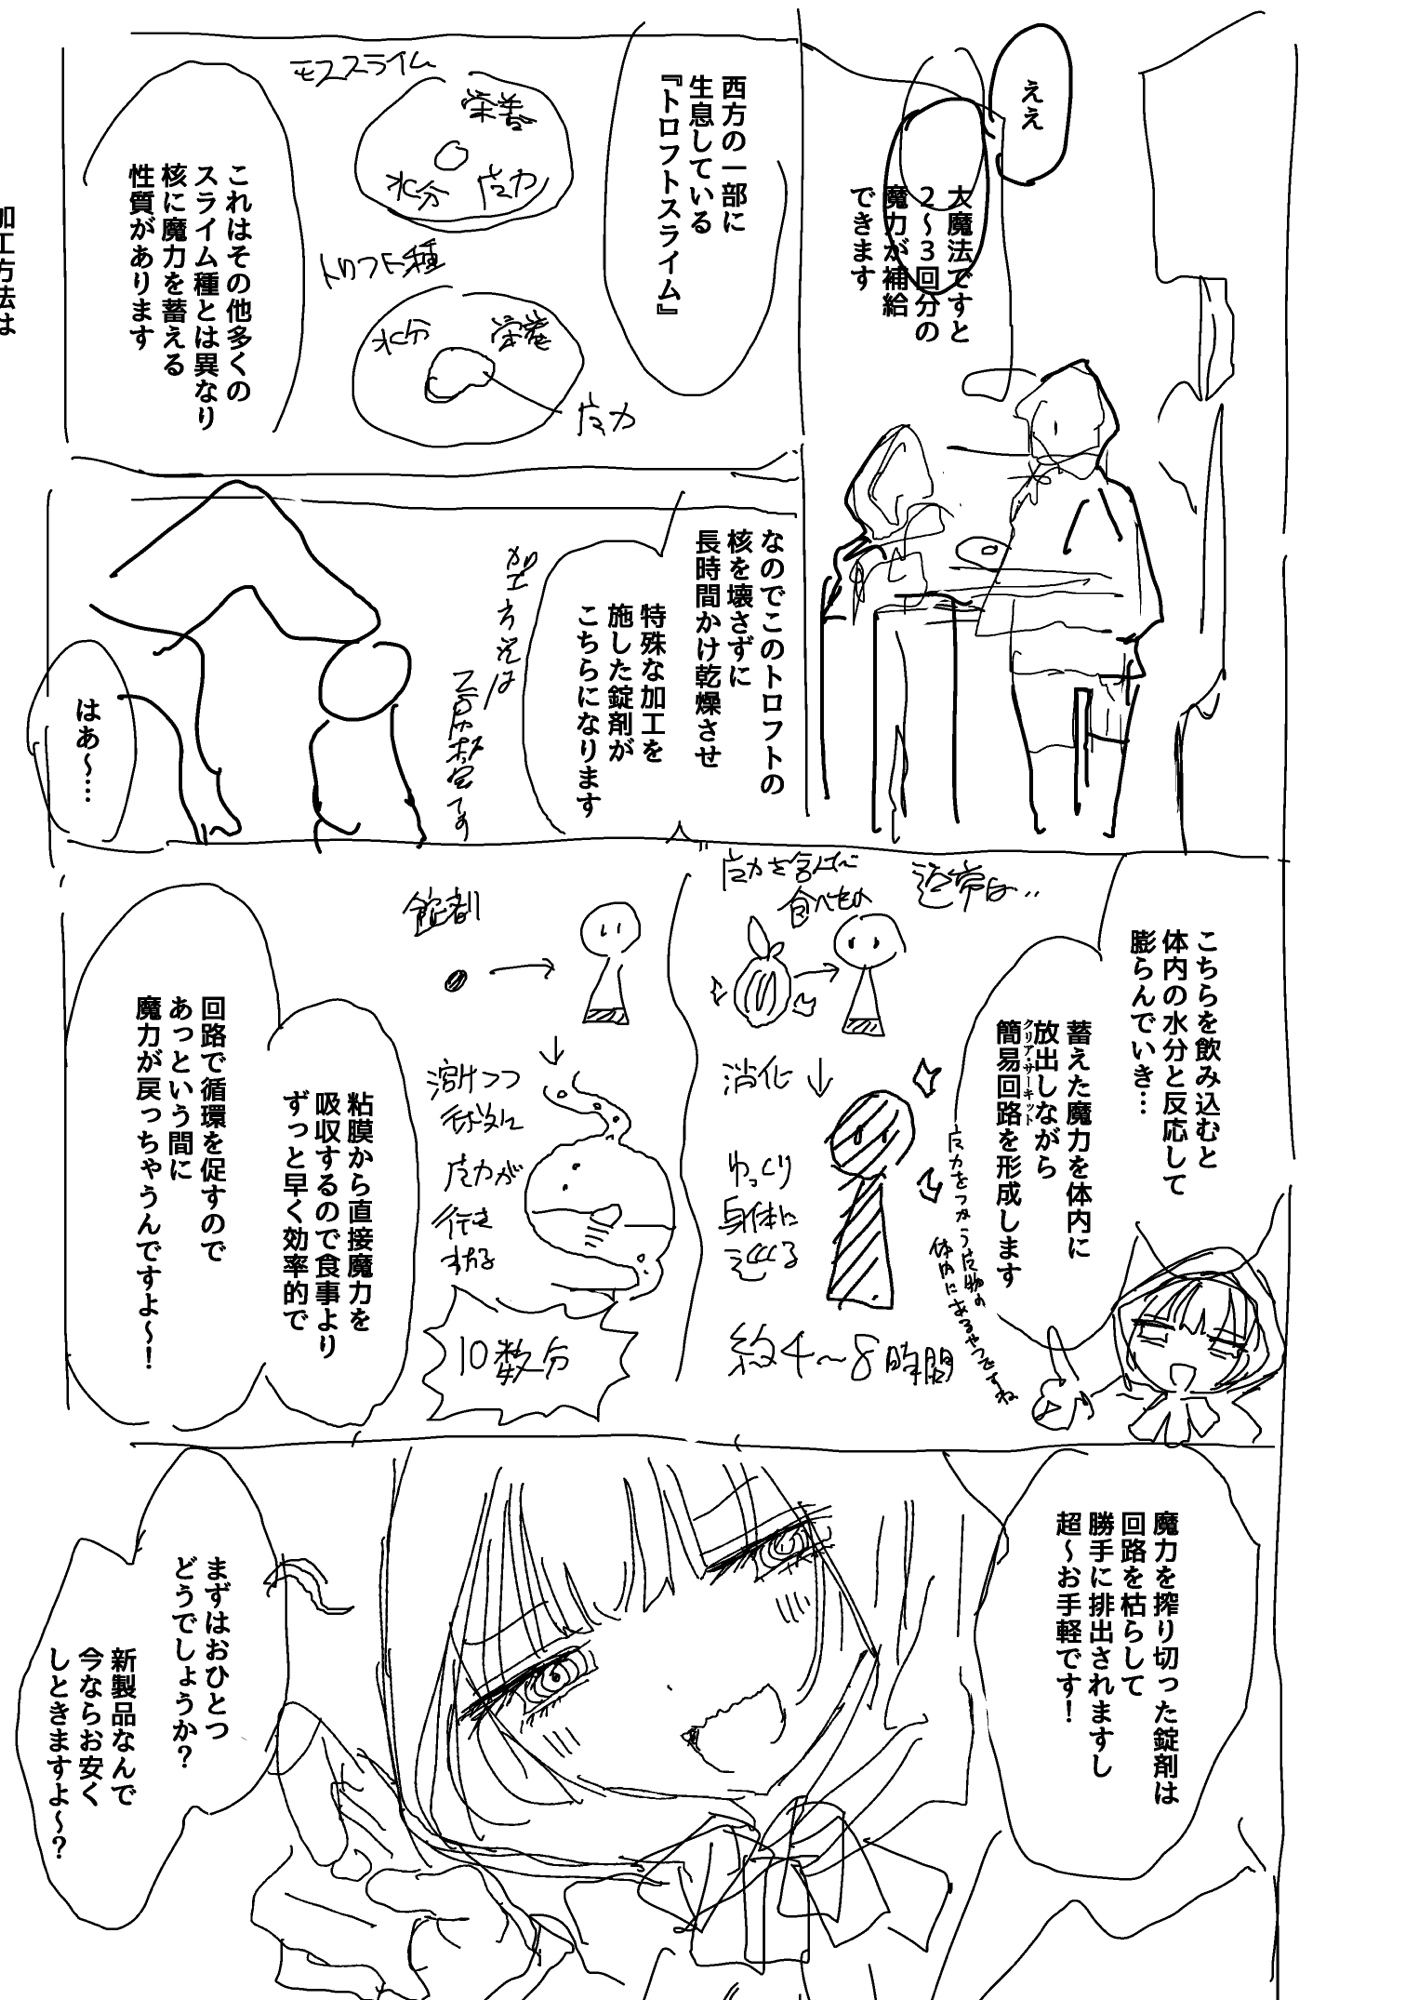 ええ
大魔法ですと
２～３回分の
魔力が補給
できます
西方の一部に
生息している
『トロフトスライム』
モススライム
栄養
水分
魔力
トロフト種
水分
栄養
魔力
これはその他多くの
スライム種とは異なり
核に魔力を蓄える
性質があります
加工方法は
なのでこのトロフトの
核を壊さずに
長時間かけ乾燥させ
特殊な加工を
施した錠剤が
こちらになります
加工方法は
はあ～…
こちらを飲み込むと
体内の水分と反応して
膨らんでいき…
蓄えた魔力を体内に
放出しながら
クリア・サーキット
簡易回路を形成します
魔力をつかう魔物の
体内にあるやつですね
通常は‥
魔力を含んだ
食べもの
消化
ゆっくり
身体に
約4～8時間
錠剤
溶けつつ
魔力が
行き
10数分
粘膜から直接魔力を
吸収するので食事より
ずっと早く効率的で
回路で循環を促すので
あっという間に
魔力が戻っちゃうんですよ～！
魔力を搾り切った錠剤は
回路を枯らして
勝手に排出されますし
超～お手軽です！
まずはおひとつ
どうでしょうか？
新製品なんで
今ならお安く
しときますよ～？